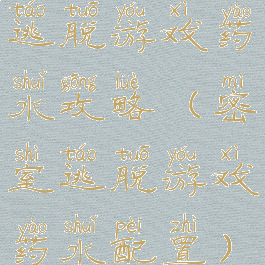 táo tuō yóu xì yào
逃脱游戏药
shuǐ gōng lüè mì
水攻略（密
shì táo tuō yóu xì
室逃脱游戏
yào shuǐ pèi zhì
药水配置）